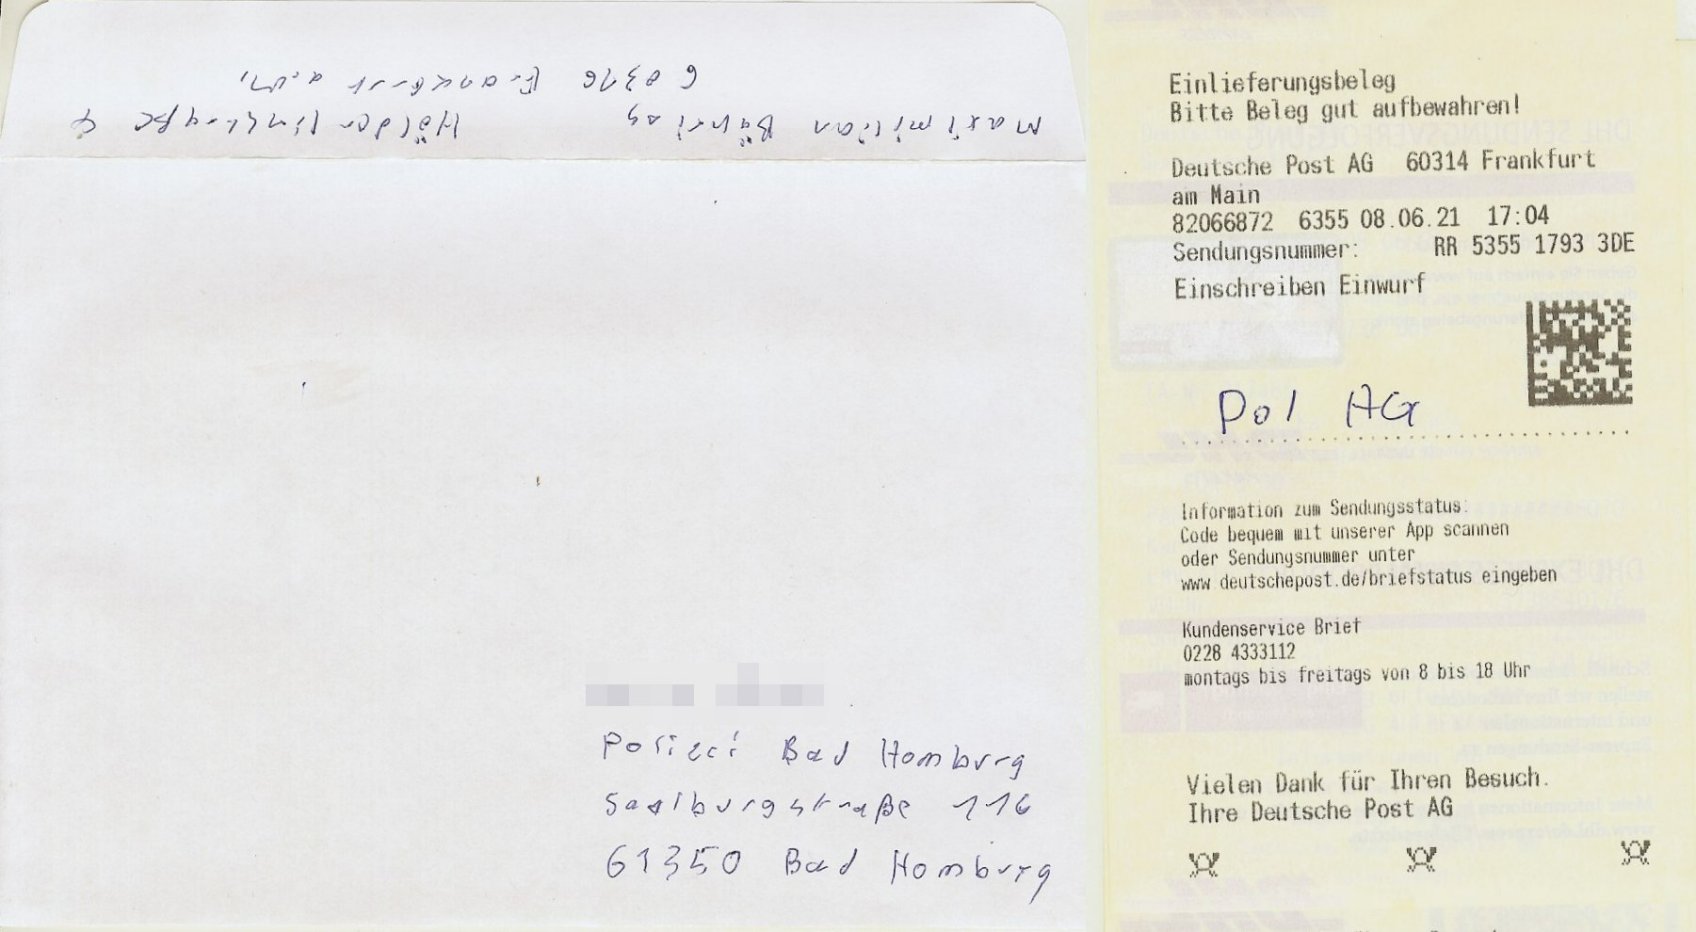 Maximilian Bähring Hölderlinstraße 4
60316 Frankfurt a.M.
Polizei Bad Homburg
Saalburgstraße 116
61350 Bad Homburg
Einlieferungsbeleg
Bitte Beleg gut aufbewahren!
Deutsche Post AG 60314 Frankfurt
am Main
82066872 6355 08.06.21 17:04
Sendungsnummer: RR 5355 1793 3DE
Einschreiben Einwurf
Pol HG
Information zum Sendungsstatus:
Code bequem mit unserer App scannen
oder Sendungsnummer unter
www deutschepost.de/briefstatus eingeben
Kundenservice Brief
0228 4333112
montags bis freitags von 8 bis 18 Uhr
Vielen Dank für Ihren Besuch.
Ihre Deutsche Post AG